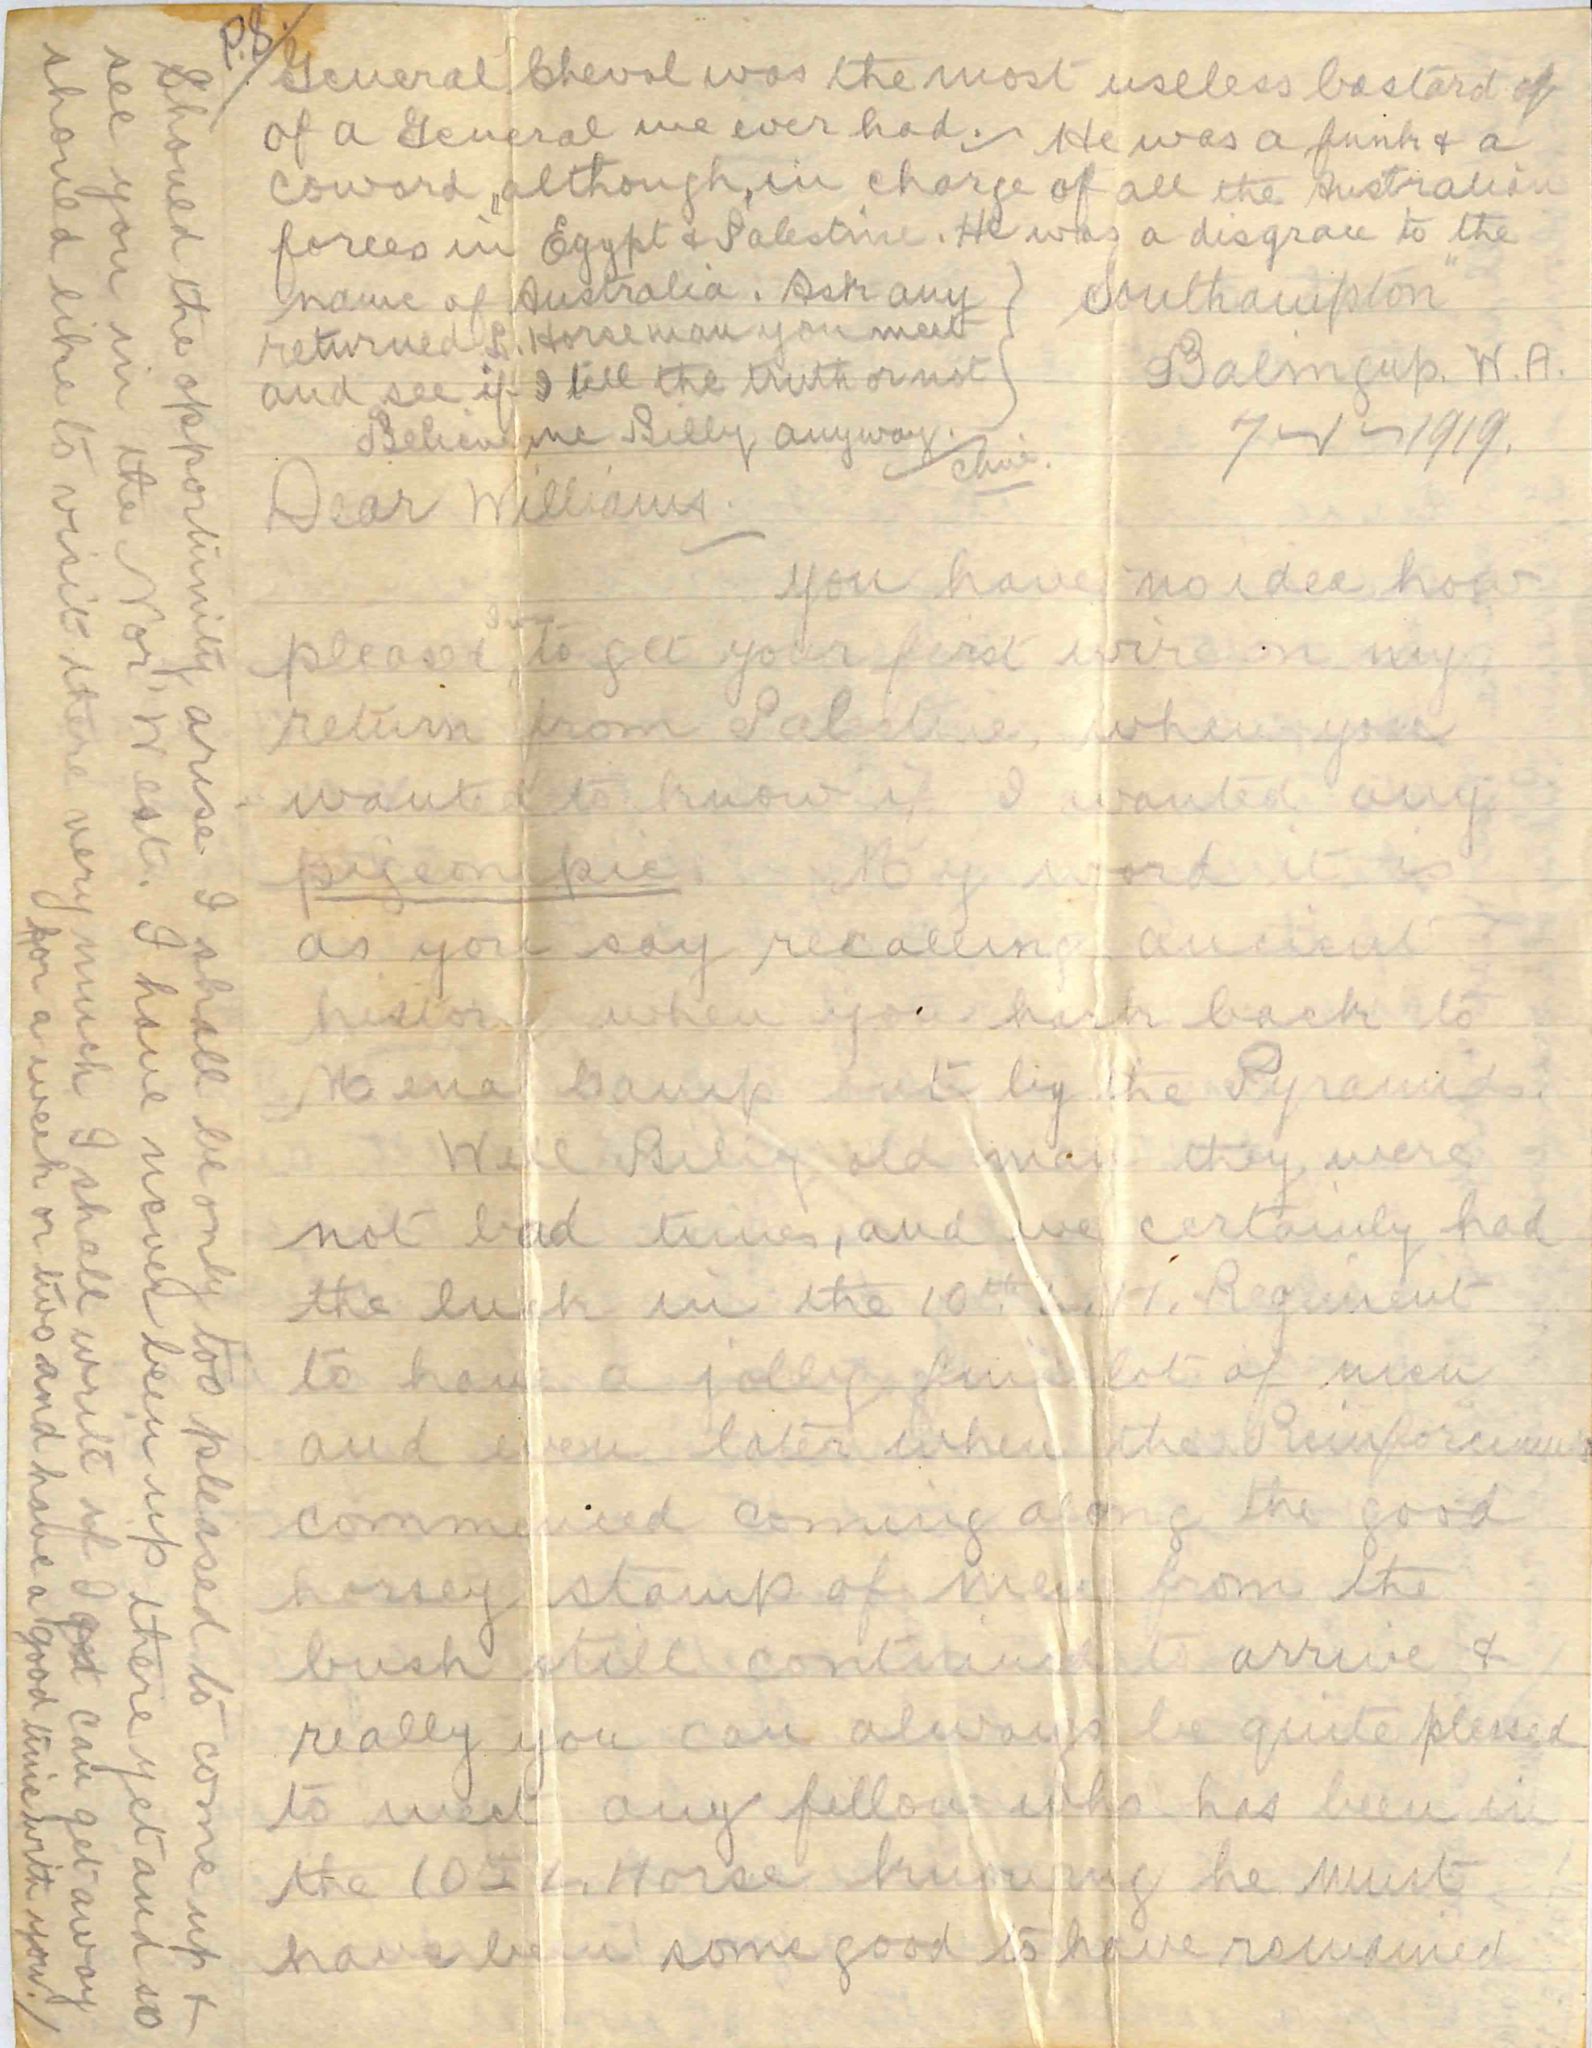 P.S.
General Cheval was the most useless bastard of
of a General we ever had. He was a funk & a
coward, although, in charge of all the Australian
forces in Egypt & Palestine. He was a disgrace to the
name of Australia. Ask any
returned L. Horseman you meet
and see if I tell the truth or not
Believe me Billy anyway.
Clive.
"Southampton"
Balingup. W.A.
7-1-1919.
Dear Williams.
You have no idea how
pleased I was to get your first wire on my
return from Palestine, when you
wanted to know if I wanted any
pigeon pie. My word it is
as you say recalling ancient
history when you hark back to
Mena Camp out by the Pyramids.
Well Billy old man they were
not bad times, and we certainly had
the luck in the 10th L.H. Regiment
to have a jolly fine lot of men
and even later when the Reinforcements
commenced coming along the good
horsey stamp of men from the
bush still continued to arrive &
really you can always be quite plesed
to meet any fellow who has been in
the 10th L. Horse knowing he must
have been some good to have remained
Should the opportunity arise I shall be only too pleased to come up &
see you in the Nor' West. I have never been up there yet and so
should like to visit there very much I shall write if I can get away
for a week or two and have a good time with you.